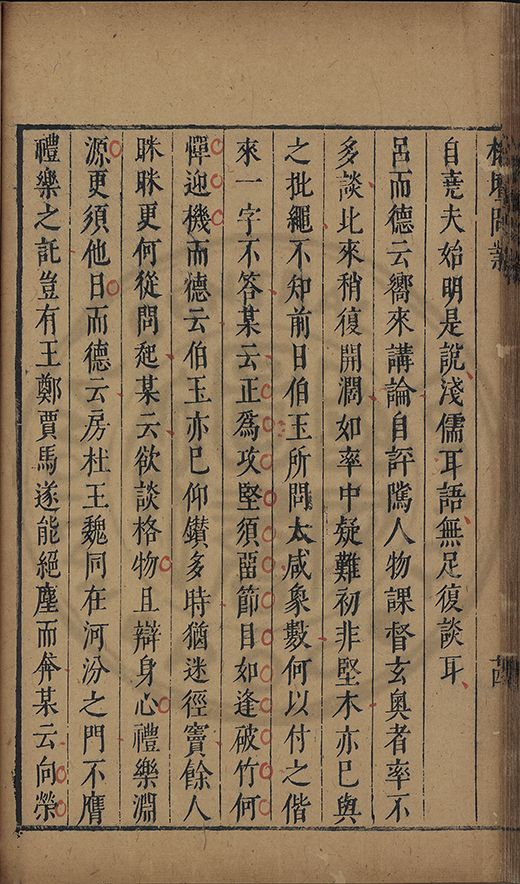 榕壇問業
自堯夫始明是說淺儒耳語無足復談耳
呂而德云嚮來講論自評隲人物課督玄奧者率不
多談比來稍復開濶如率中疑難初非堅木亦已與
之批繩不知前日伯玉所問太咸象數何以付之偕
來一字不答某云正爲攻堅須畱節目如逢破竹何
憚迎機而德云伯玉亦已仰鑚多時猶迷徑竇餘人
眯眯更何從問起某云欲談格物且辯身心禮樂淵
源更須他日而德云房杜王魏同在河汾之門不膺
禮樂之託豈有王鄭賈馬遂能絕塵而奔某云向榮